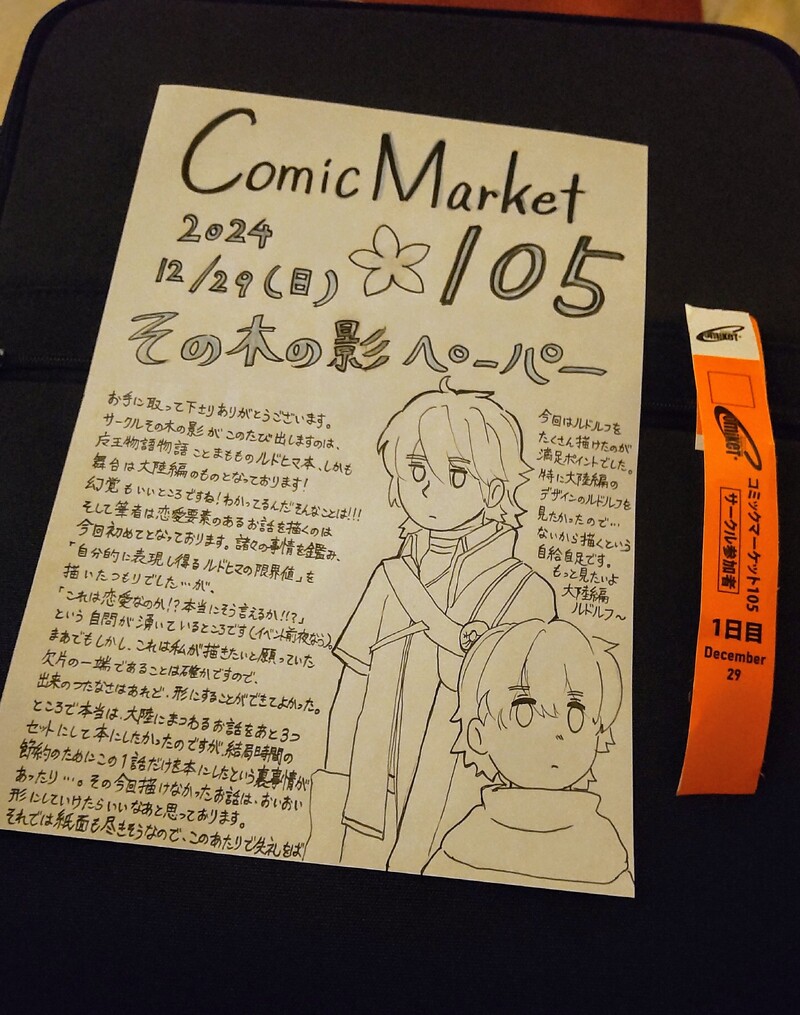 Comic Market
105
2024
12/29(日)
その木の影 ペーパー
お手に取って下さりありがとうございます。
サークルその木の影がこのたび出しますのは、
灰王物語物語 こともものルドヒマ本、しかも
舞台は大陸編のものとなっております!
幻覚もいいところですね!わかってるんだそんなことは!!!
そして筆者は恋愛要素のあるお話を描くのは
今回初めてとなっております。諸々の事情を鑑み、
「自分的に表現し得るルドヒマの限界値」を
描いたつもりでした…が、
「これは恋愛なのか!?本当にそう言えるか!!?」
という自問が湧いているところです(イベント前夜なう)。
まあでもしかし、これは私が描きたいと願っていた
欠片の一端であることは確かですので、
出来のつたなさはあれど、形にすることができてよかった。
ところで本当は、大陸にまつわるお話をあと3つ
セットにして本にしたかったのですが、結局時間の
節約のためにこの1話だけを本にしたという裏事情が
あったり…。その今回描けなかったお話は、おいおい
形にしていけたらいいなあと思っております。
それでは紙面も尽きそうなので、このあたりで失礼をば
今回はルドルフを
たくさん描けたのが
満足ポイントでした。
特に大陸編の
デザインのルドルフを
見たかったので…
ないから描くという
自給自足です。
もっと見たいよ
大陸編
ルドルフ〜
Comiket
Comiket
コミックマーケット105
サークル参加者
1日目
December
29